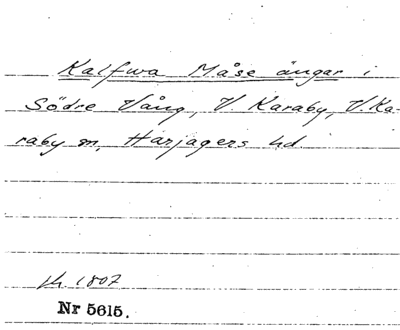 Kalfwa Måse ängar i
Södre Vång, V Karaby, V. Ka-
raby sn, Harjagers hd
1807
Nr 5615.